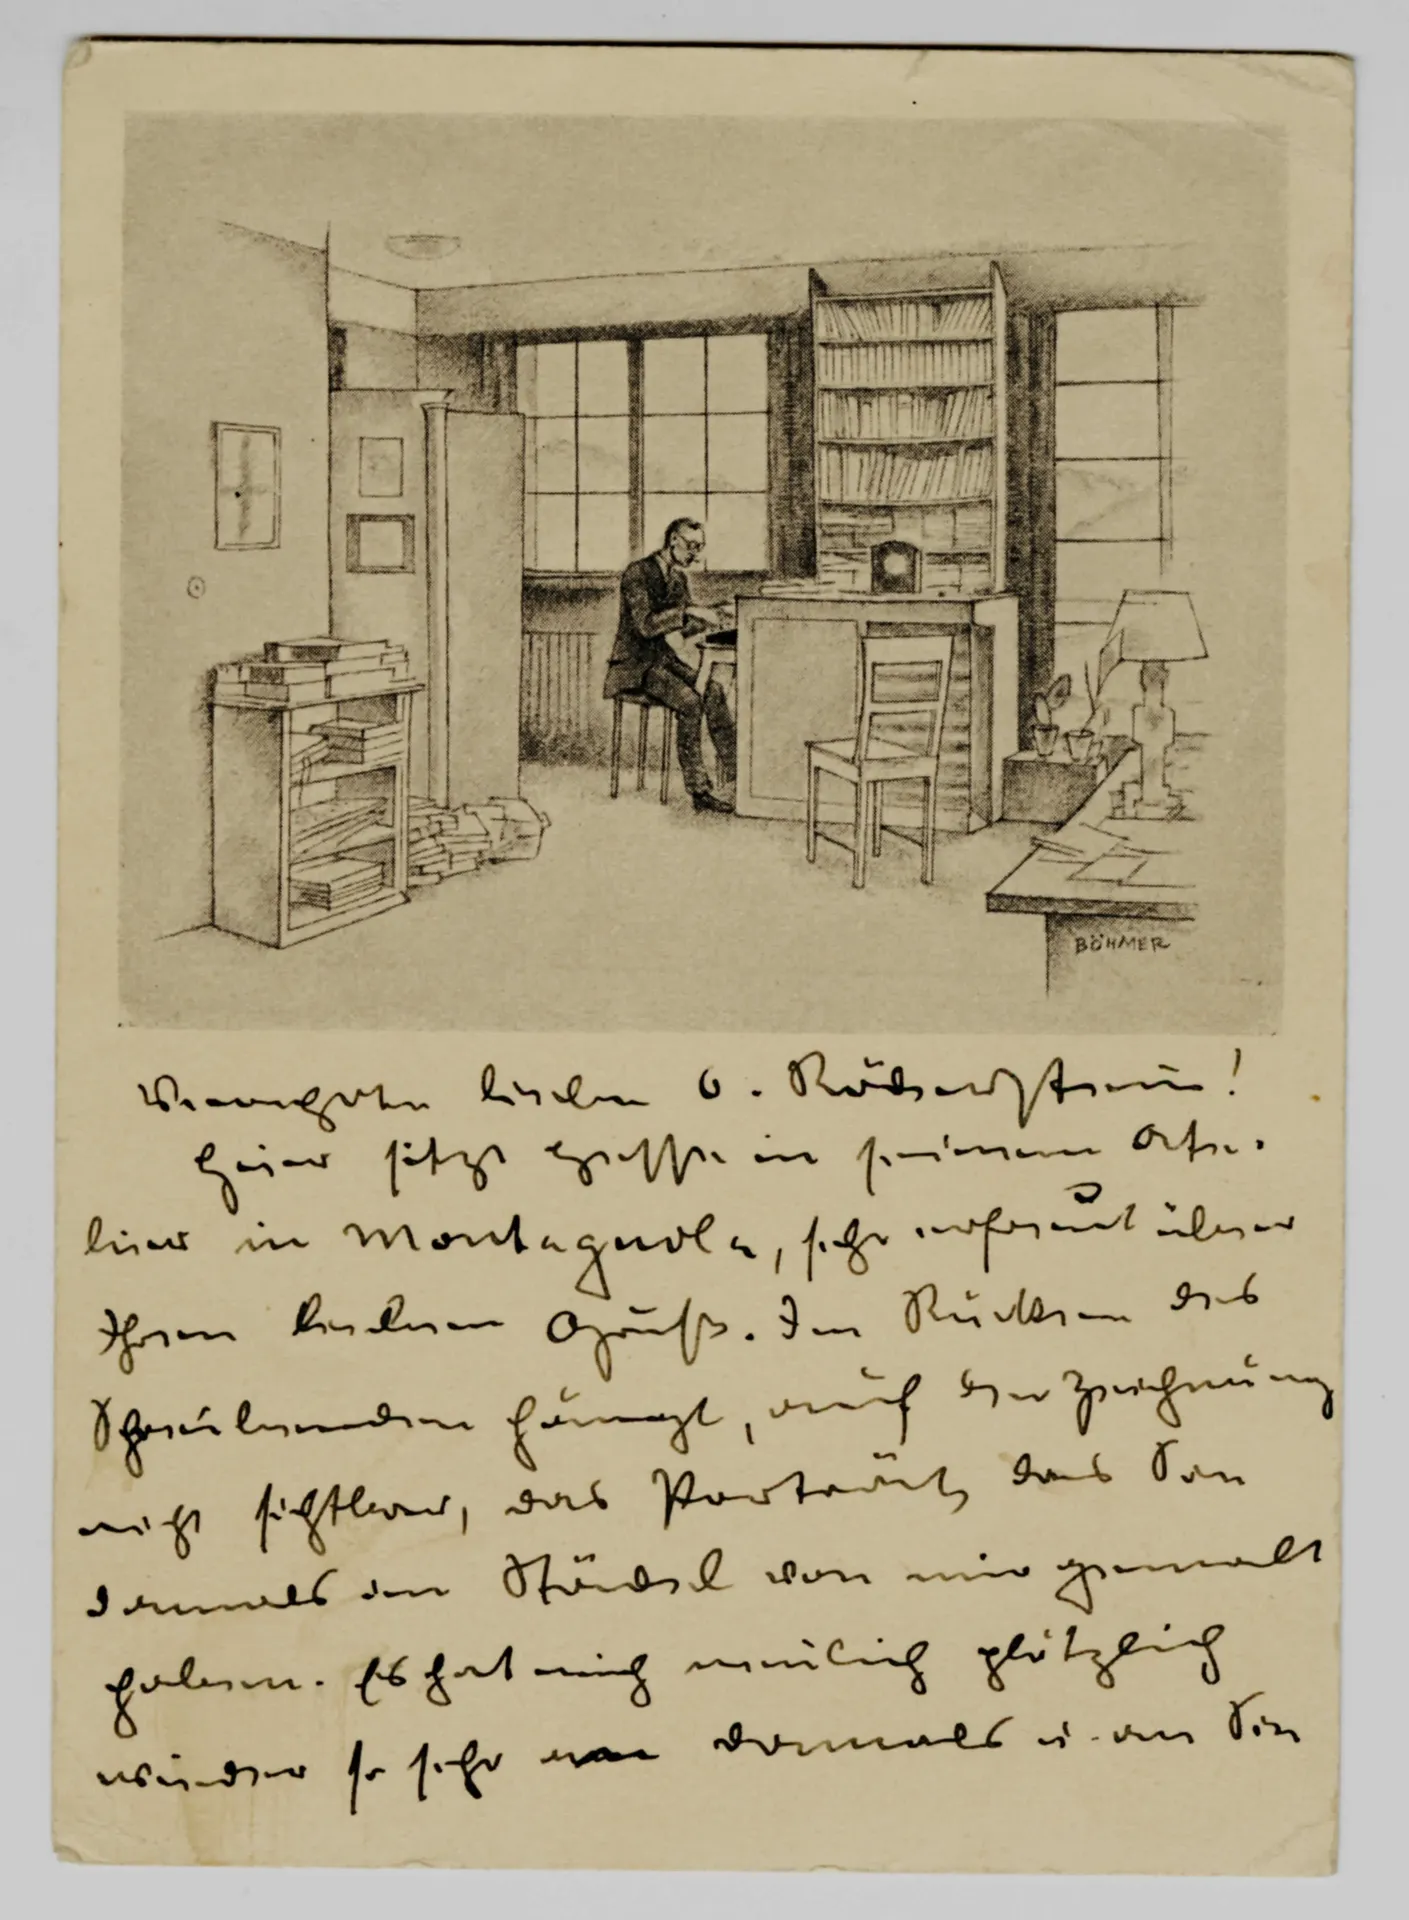 BÖHMER
Verehrter lieber G. Röderstein!
Hier sitzt Hesse in seinem Ate-
lier in Montagnola, sehr erfreut über
Ihren lieben Gruß. Im Rücken des
Schreibenden hängt, auf der Zeichnung
nicht sichtbar, das Porträt, das Sie
damals im Städel von mir gemalt
haben. Es hat mich neulich plötzlich
wieder so sehr an damals u. an Sie